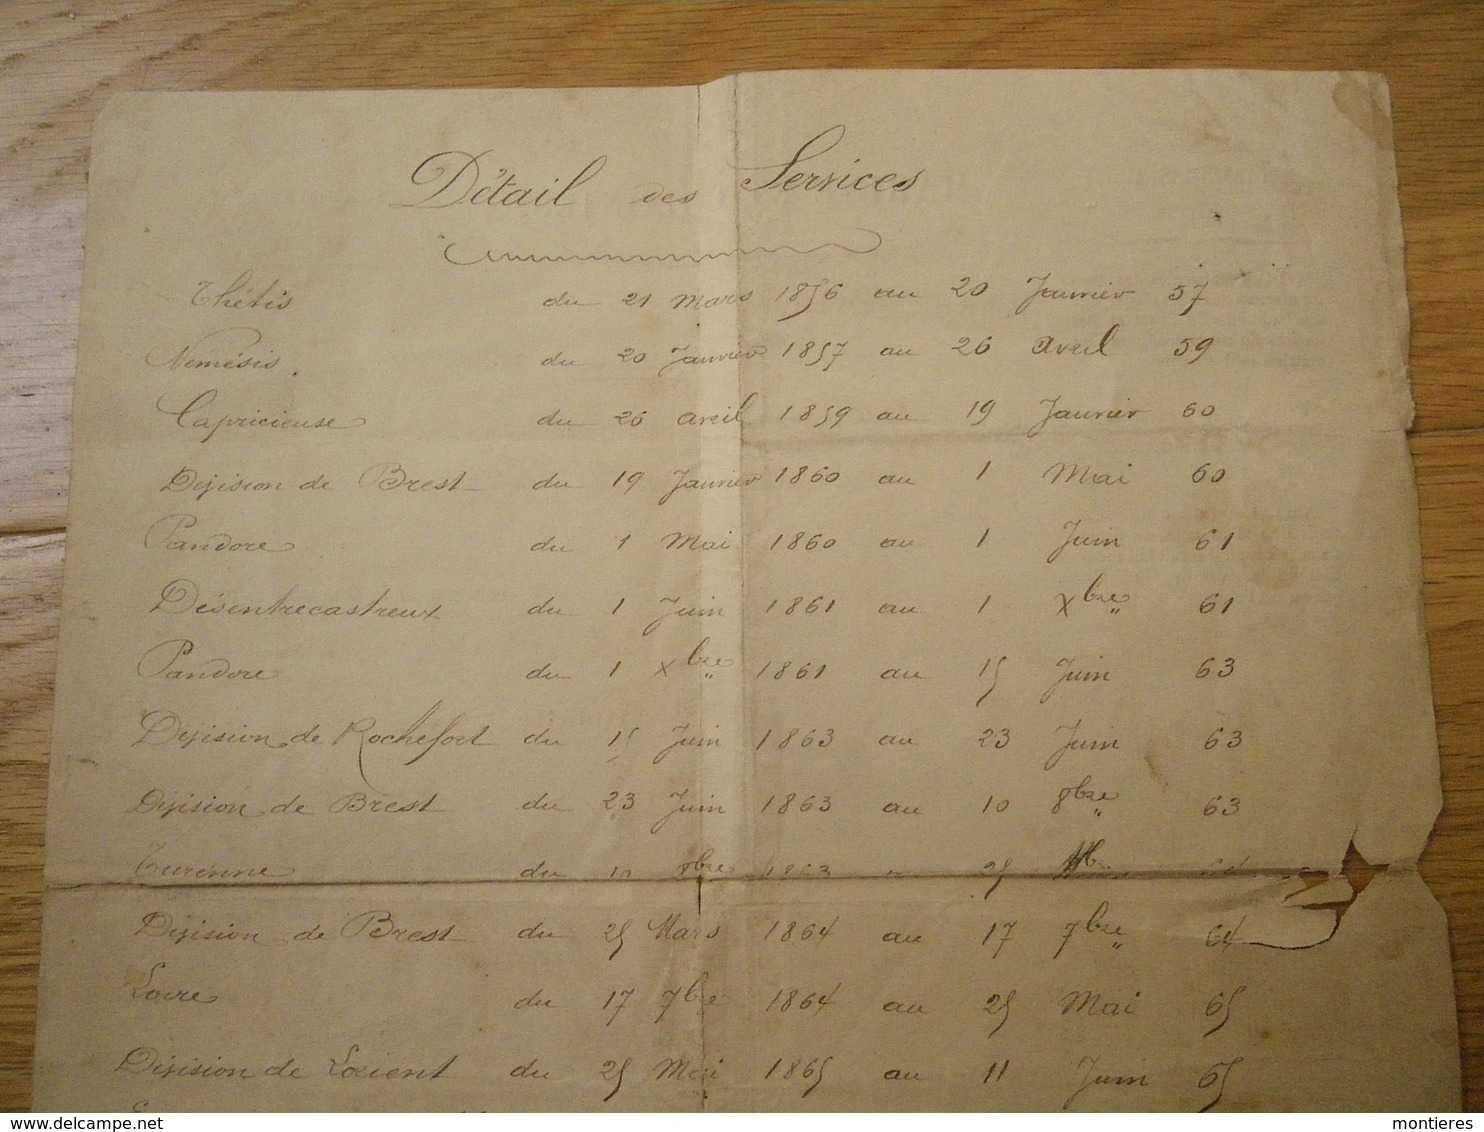 Détail des Services
Thétis du 21 Mars 1856 au 20 Janvier 57
Nemésis du 20 Janvier 1857 au 26 Avril 59
Capricieuse du 26 avril 1859 au 19 Janvier 60
Division de Brest du 19 Janvier 1860 au 1 Mai 60
Pandore du 1 Mai 1860 au 1 Juin 61
Désentrecastreux du 1 Juin 1861 au 1 Xbre 61
Pandore du 1 Xbre 1861 au 15 Juin 63
Division de Rochefort du 15 Juin 1863 au 23 Juin 63
Division de Brest du 23 Juin 1863 au 10 8bre 63
Turenne du 10 8bre 1863 25
Division de Brest du 25 Mars 1864 au 17 7bre 64
Loire du 17 7bre 1864 au 25 Mai 65
Division de Lorient du 25 Mai 1865 au 11 Juin 65
delcampe.net
montieres